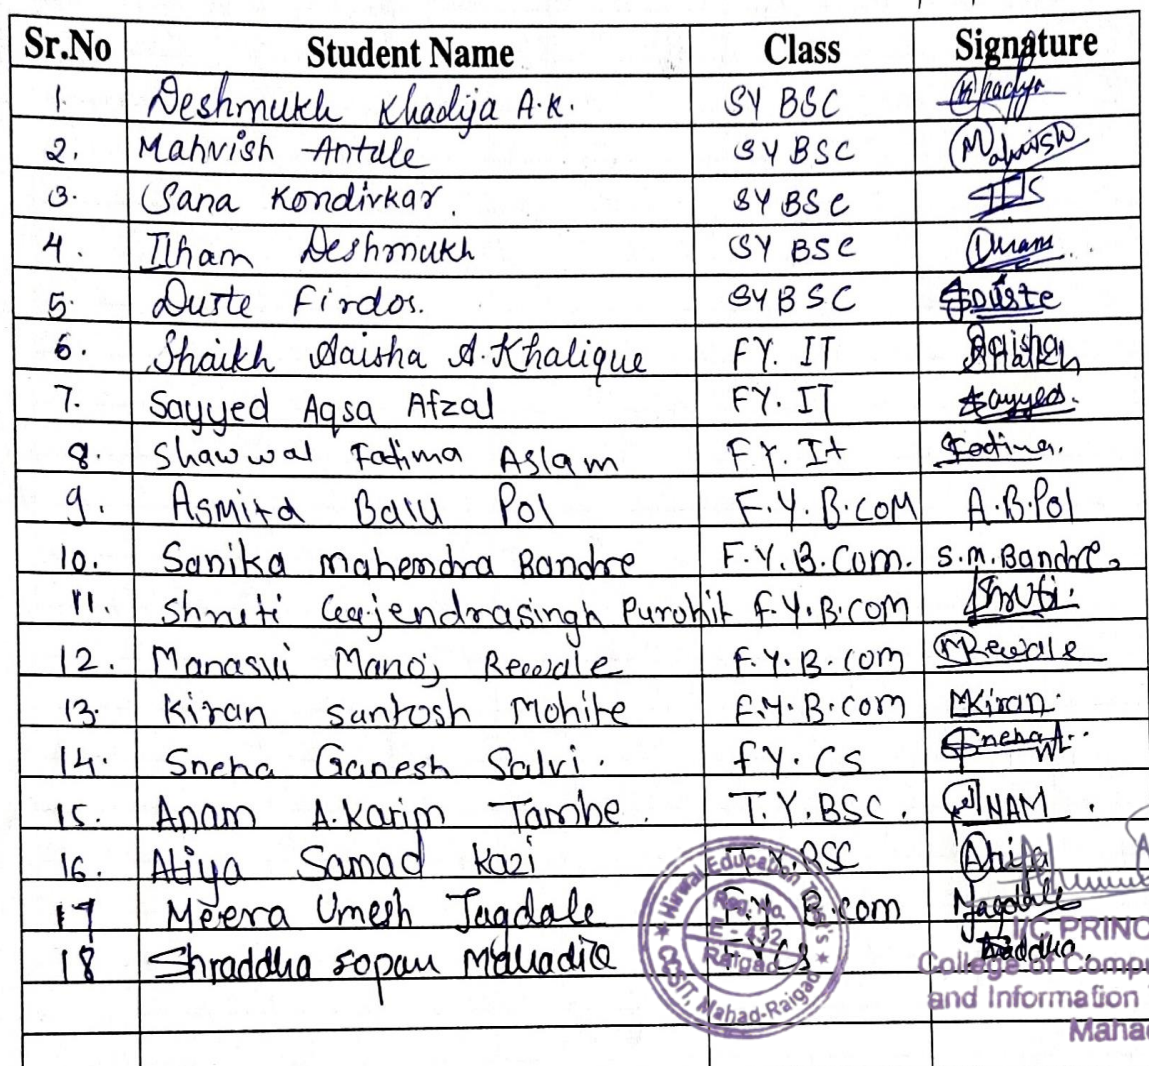 Sr.No Student Name Class Signature
1. Deshmukh Khadija A.K. SY BSC Khadija
2. Mahvish Antule SY BSC Mahvish
3. Sana Kondivkar. SY BSC
4. Ilham Deshmukh SY BSC
5. Durte Firdos. SY BSC Durte
6. Shaikh Aaisha A. Khalique FY. IT Aaisha Shaikh
7. Sayyed Aqsa Afzal FY. IT Sayyed.
8. Shawwal Fatima Aslam FY. It Fatima.
9. Asmita Balu Pol F.Y.B.COM A.B.Pol
10. Sanika Mahendra Bandre F.Y.B.Com. S.M.Bandre.
11. Shruti Gajendrasingh Purohit F.Y.B.com Shruti.
12. Manasvi Manoj Rewale F.Y.B.com MRewale
13. Kiran Santosh Mohite F.Y.B.com MKiran.
14. Sneha Ganesh Salvi. FY.CS Sneha
15. Anam A.Karim Tambe. T.Y.BSC. ANAM.
16. Atiya Samad Kazi T.Y.BSC Atiya
17 Meera Umesh Jagdale B.com Jagdale
18 Shraddha Sopan FYCS
Hirwal Education Trust's
Reg. No.
E - 432
Raigad
CCSIT, Mahad-Raigad
I/C PRINC
College of Compu
and Information
Maha